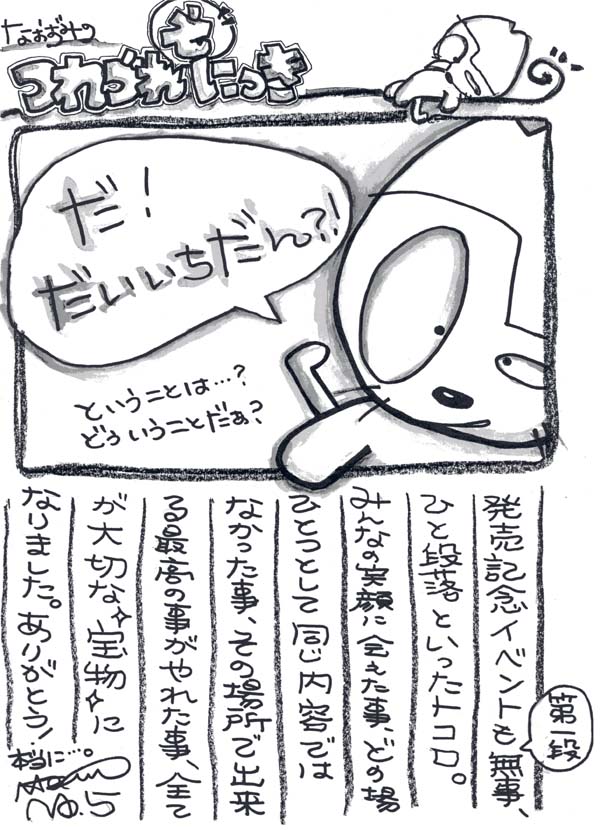 なおおみの
つれづれ
ぜ
にっき
だ！
だいいちだん？！
ということは…？
どういうことだぁ？
発売記念イベントも無事、
ひと段落といったトコロ。
みんなの笑顔に会えた事、どの場
ひとつとして同じ内容では
なかった事、その場所で出来
る最高の事がやれた事、全て
が大切な宝物に
なりました。ありがとう！
第一段
本当に…。
No.5